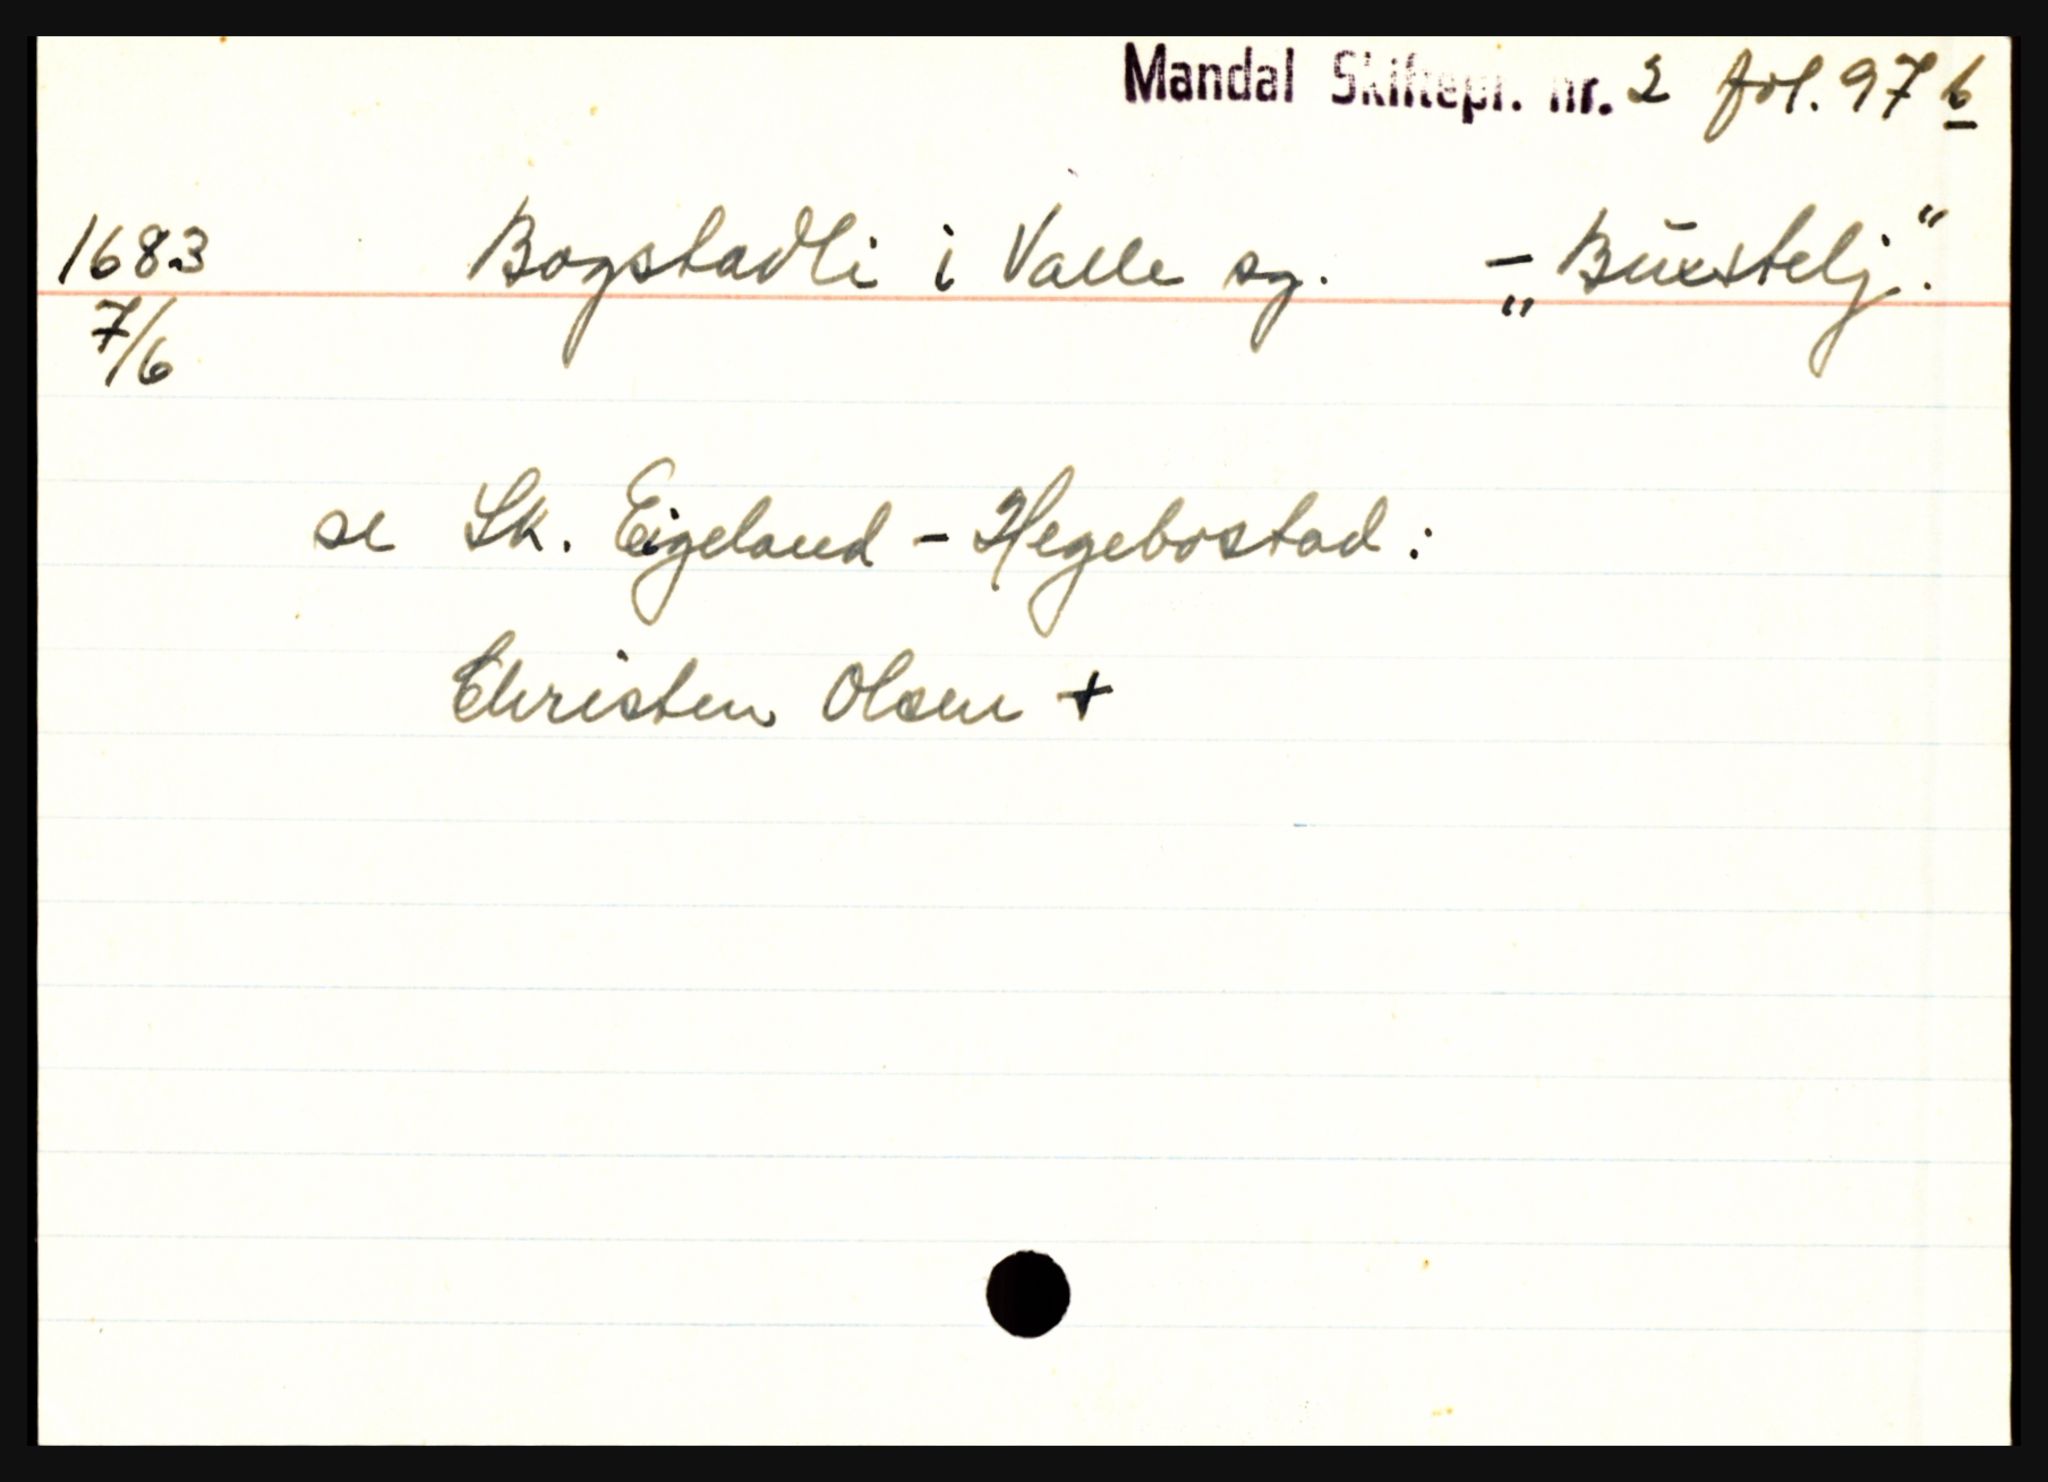 Mandal Skiftepr. nr. 2 fol. 97 b
1683 Bogstadli i Valle sg. - „Buxstelj".
7/6
se Sk. Eigeland - Hegebostad:
Christen Olsen +